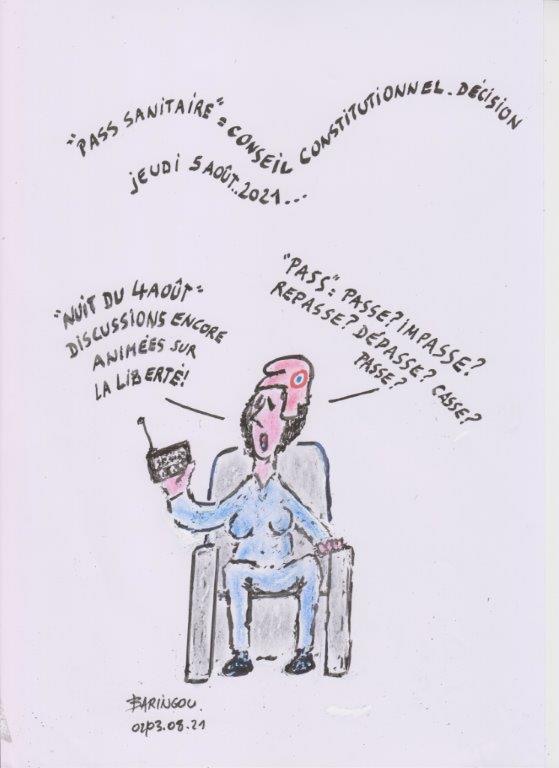 "PASS SANITAIRE" = CONSEIL CONSTITUTIONNEL. DÉCISION
JEUDI 5 AOÛT.. 2021...
"NUIT DU 4 AOÛT" =
DISCUSSIONS ENCORE
ANIMÉES SUR
LA LIBERTÉ!
"PASS" : PASSE? IMPASSE?
REPASSE? DÉPASSE? CASSE?
PASSE?
BARINGOU.
02/03.08.21